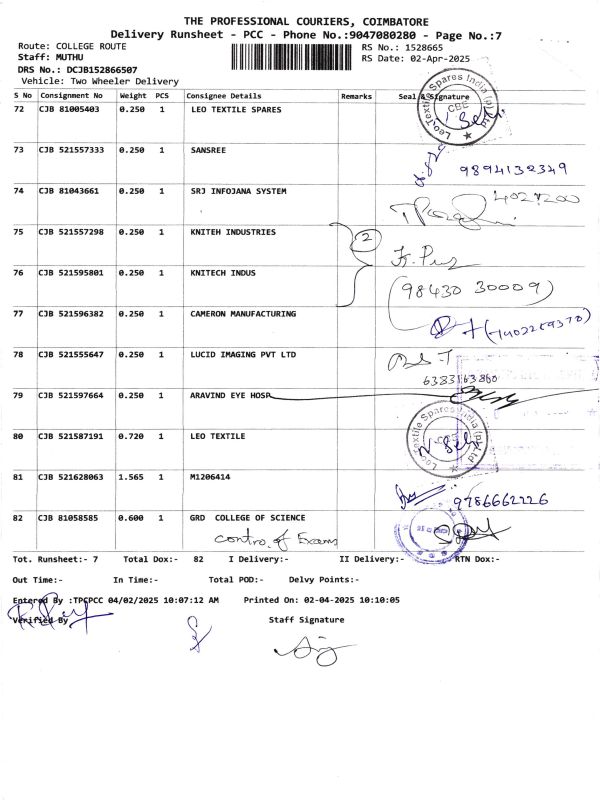 THE PROFESSIONAL COURIERS, COIMBATORE
Delivery Runsheet - PCC - Phone No.:9047080280 - Page No.:7
Route: COLLEGE ROUTE RS No.: 1528665
Staff: MUTHU RS Date: 02-Apr-2025
DRS No.: DCJB152866507
Vehicle: Two Wheeler Delivery
S No Consignment No Weight PCS Consignee Details Remarks Seal & Signature
72 CJB 81005403 0.250 1 LEO TEXTILE SPARES
Leo Textile Spares India (p) Ltd
CBE
73 CJB 521557333 0.250 1 SANSREE
9894132349
74 CJB 81043661 0.250 1 SRJ INFOJANA SYSTEM
75 CJB 521557298 0.250 1 KNITEH INDUSTRIES
2
76 CJB 521595801 0.250 1 KNITECH INDUS
(98430 30009)
77 CJB 521596382 0.250 1 CAMERON MANUFACTURING
78 CJB 521555647 0.250 1 LUCID IMAGING PVT LTD
6383163860
79 CJB 521597664 0.250 1 ARAVIND EYE HOSP
80 CJB 521587191 0.720 1 LEO TEXTILE
Leo Textile Spares India (p) Ltd
81 CJB 521628063 1.565 1 M1206414
9786662226
82 CJB 81058585 0.600 1 GRD COLLEGE OF SCIENCE
contro. of Exams
Tot. Runsheet:- 7 Total Dox:- 82 I Delivery:- II Delivery:- RTN Dox:-
Out Time:- In Time:- Total POD:- Delvy Points:-
Entered By :TPCPCC 04/02/2025 10:07:12 AM Printed On: 02-04-2025 10:10:05
Verified By Staff Signature